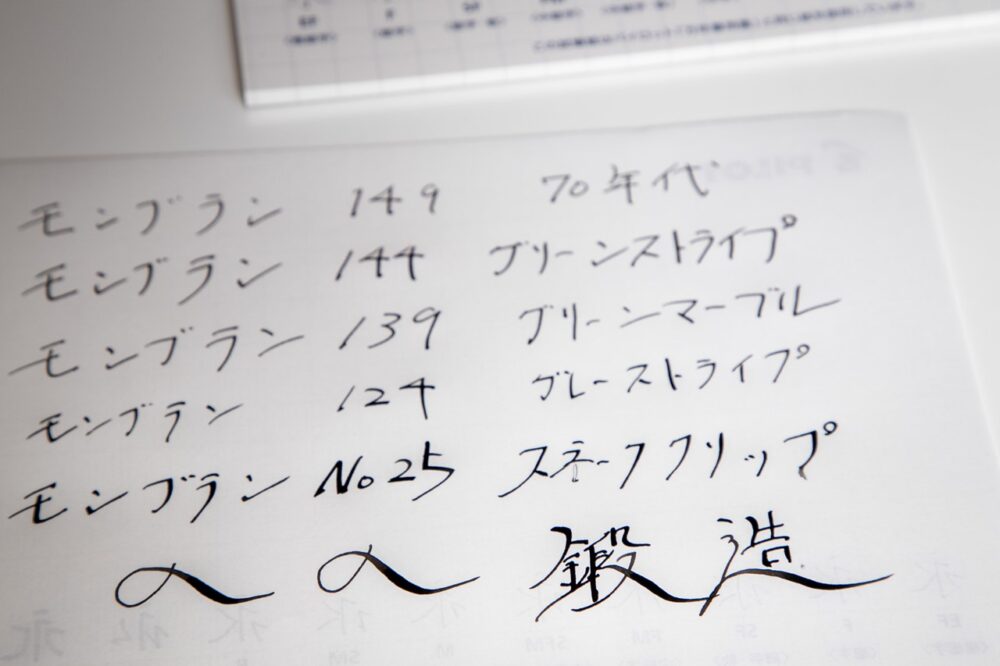 モンブラン 149 70年代
モンブラン 144 グリーンストライプ
モンブラン 139 グリーンマーブル
モンブラン 124 グレーストライプ
モンブラン No25 スネーククリップ
鍛造